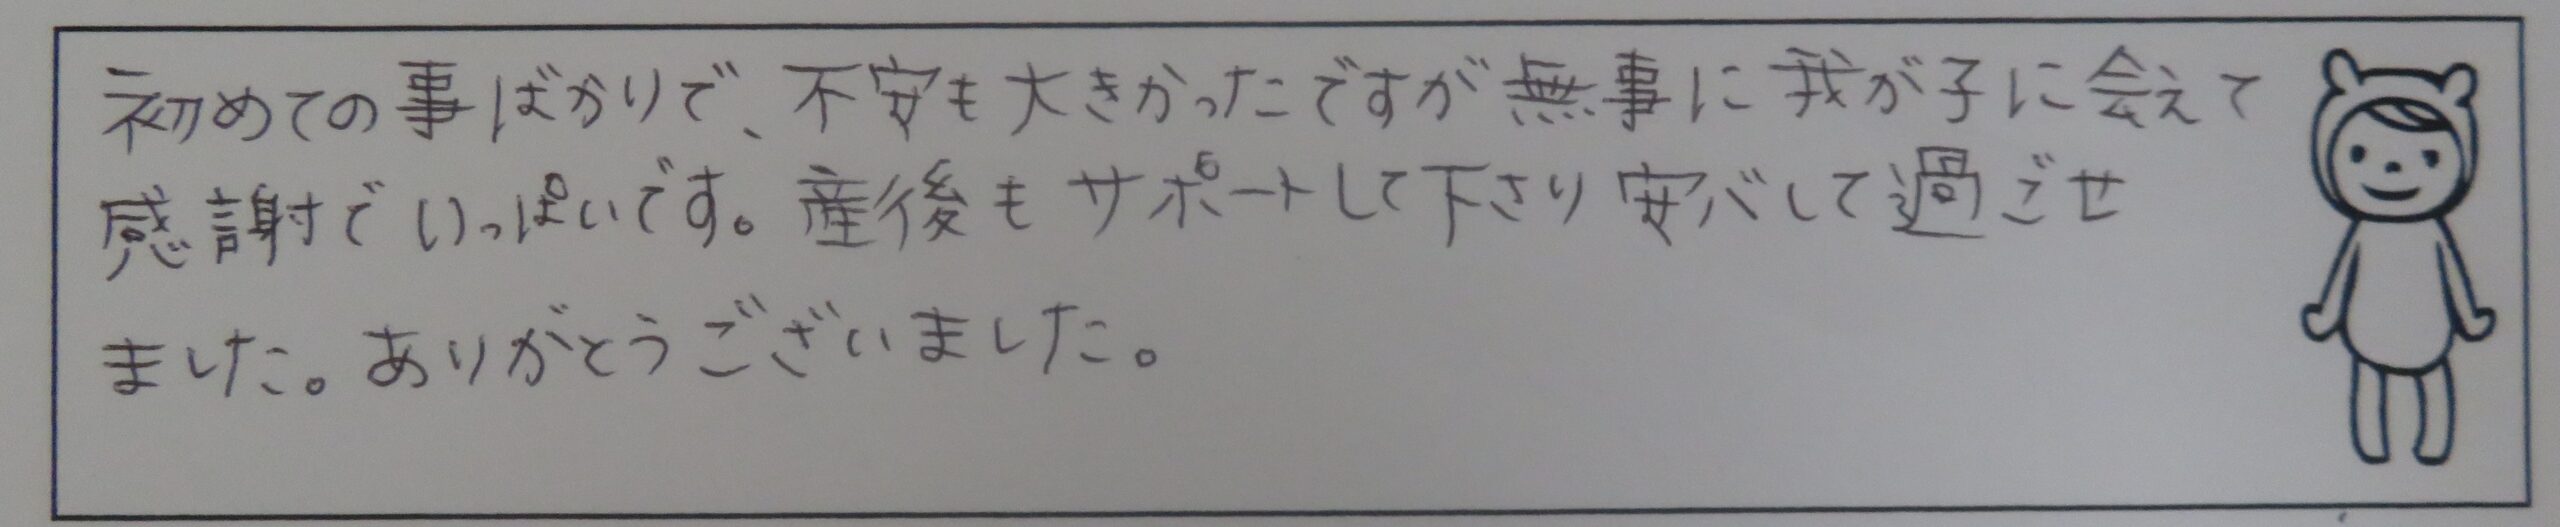 初めての事ばかりで、不安も大きかったですが無事に我が子に会えて
感謝でいっぱいです。産後もサポートして下さり安心して過ごせ
ました。ありがとうございました。